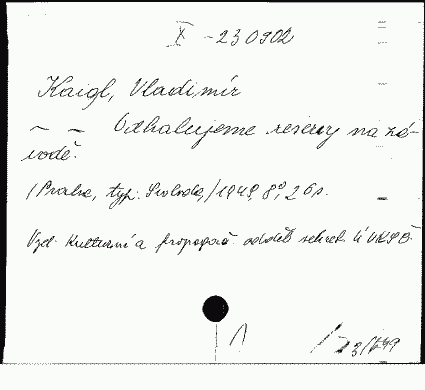 X - 230902
Kaigl, Vladimír
— — Odhalujeme reservy na zá-
vodě.
/Praha, typ. Svoboda,/ 1949, 8°, 26 s.
Vyd. Kulturní a propagač. odděl. sekret. ÚV KSČ.
1